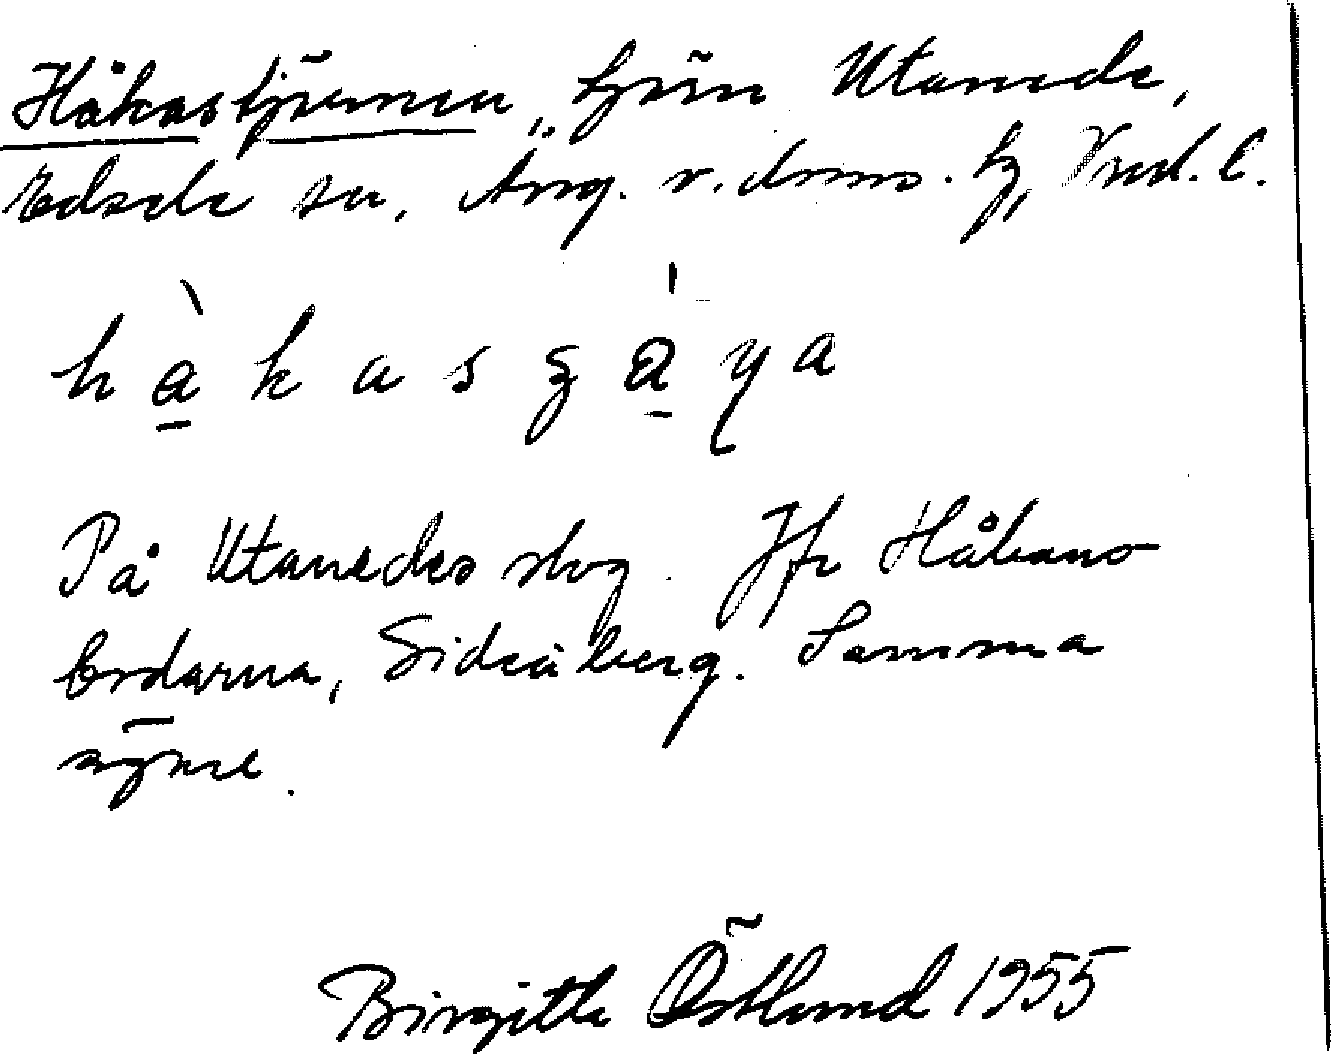 Håkastjärnen, tjärn Utanede,
Edsele sn, Ång. v. doms. tg, Vnl. l.
h à k a s ʒ á y a
På Utanedes skog. Jfr Håkans
bodarna, Sidsjöberg. Samma
ägare.
Birgitta Östlund 1955